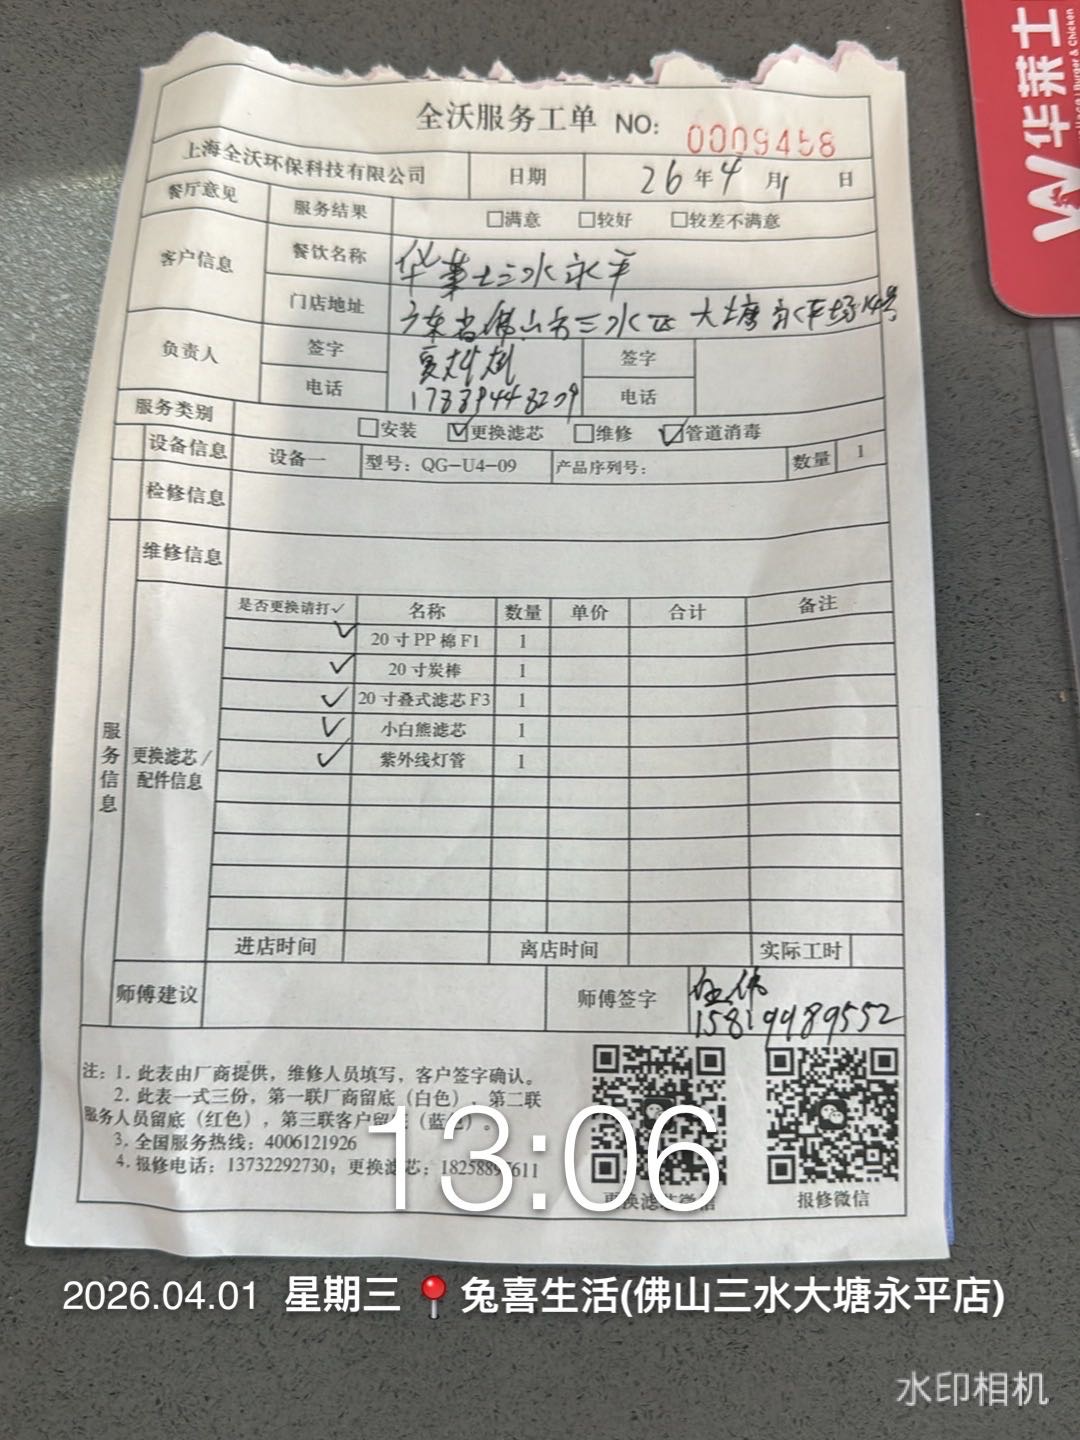 华莱士
Burger & Chicken
全沃服务工单 NO: 0009458
上海全沃环保科技有限公司 日期 26年4月1日
餐厅意见 服务结果 □满意 □较好 □较差不满意
客户信息 餐饮名称 华莱士三水永平
门店地址 广东省佛山市三水区大塘永平场14号
负责人 签字 签字
电话 17839448209 电话
服务类别 □安装 ☑更换滤芯 □维修 ☑管道消毒
设备信息 设备一 型号：QG-U4-09 产品序列号： 数量 1
检修信息
维修信息
服务信息
更换滤芯/配件信息
是否更换请打✓ 名称 数量 单价 合计 备注
✓ 20寸PP棉F1 1
✓ 20寸炭棒 1
✓ 20寸叠式滤芯F3 1
✓ 小白熊滤芯 1
✓ 紫外线灯管 1
进店时间 离店时间 实际工时
师傅建议 师傅签字 伟
15819989552
注：1. 此表由厂商提供，维修人员填写，客户签字确认。
2. 此表一式三份，第一联厂商留底（白色），第二联
服务人员留底（红色），第三联客户留底（蓝色）。
3. 全国服务热线：4006121926
4. 报修电话：13732292730；更换滤芯：
更换滤芯微信 报修微信
13:06
2026.04.01 星期三 兔喜生活(佛山三水大塘永平店)
水印相机